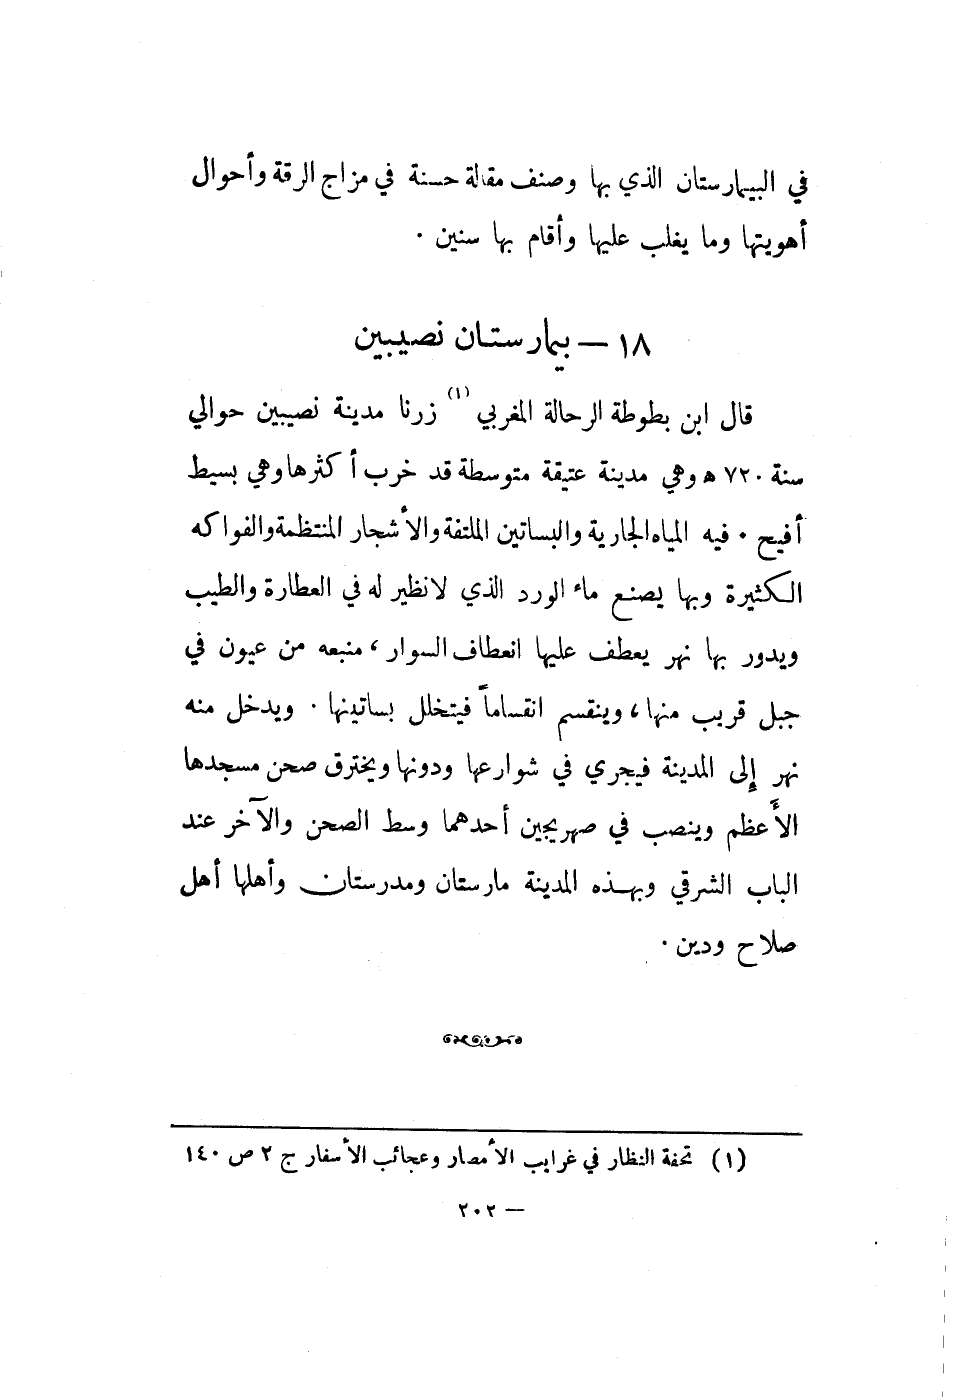 في البيمارستان الذي بها وصنف مقالة حسنة في مزاج الرقة وأحوال
أهويتها وما يغلب عليها وأقام بها سنين .
١٨ — بيمارستان نصيبين
قال ابن بطوطة الرحالة المغربي (١) زرنا مدينة نصيبين حوالي
سنة ٧٢٠ ه وهي مدينة عتيقة متوسطة قد خرب أكثرها وهي بسيط
أفيح . فيه المياه الجارية والبساتين الملتفة والأشجار المنتظمة والفواكه
الكثيرة وبها يصنع ماء الورد الذي لا نظير له في العطارة والطيب
ويدور بها نهر يعطف عليها انعطاف السوار ، منبعه من عيون في
جبل قريب منها ، وينقسم انقساماً فيتخلل بساتينها . ويدخل منه
نهر إلى المدينة فيجري في شوارعها ودونها ويخترق صحن مسجدها
الأعظم وينصب في صهريجين أحدهما وسط الصحن والآخر عند
الباب الشرقي وبهذه المدينة مارستان ومدرستان وأهلها أهل
صلاح ودين .
(١) تحفة النظار في غرايب الأمصار وعجائب الأسفار ج ٢ ص ١٤٠
— ٢٠٢